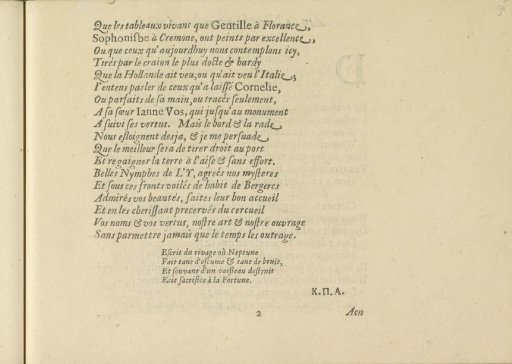 Que les tableaux vivans que Gentille à Florance,
Sophonisbe à Cremone, ont peints par excellence,
Ou que ceux qu'aujourdhuy nous contemplons icy,
Tirés par le craion le plus docte & hardy
Que la Hollande ait veu, ou qu'ait veu l'Italie,
I'entens parler de ceux qu'a laissé Cornelie,
Ou parfaits de sa main, ou tracés seulement,
A sa sœur Ianne Vos, qui jusqu'au monument
A suivi ses vertus. Mais le bord & la rade
Nous esloignent desja, & je me persuade
Que le meilleur sera de tirer droit au port
Et regaigner la terre à l'aise & sans effort.
Belles Nymphes de L'Y, agreés nos mysteres
Et sous ces fronts voilés de habit de Bergeres
Admirés vos beautés, faites leur bon accueil
Et en les cherissant preservés du cercueil
Vos noms & vos vertus, nostre art & nostre ouvrage
Sans parmettre jamais que le temps les outrage.
Escrit du rivage où Neptune
Fait tant d'escume & tant de bruit,
Et souvant d'un vaisseau destruit
Fait sacrifice à la Fortune.
K.Π.A.
2
Aen